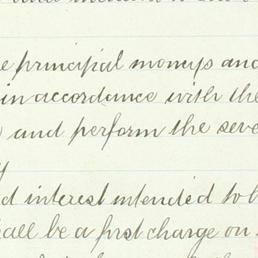 e principal moneys and
in accordance with the
) and perform the seve
y
d interest intended to b
hall be a first charge on